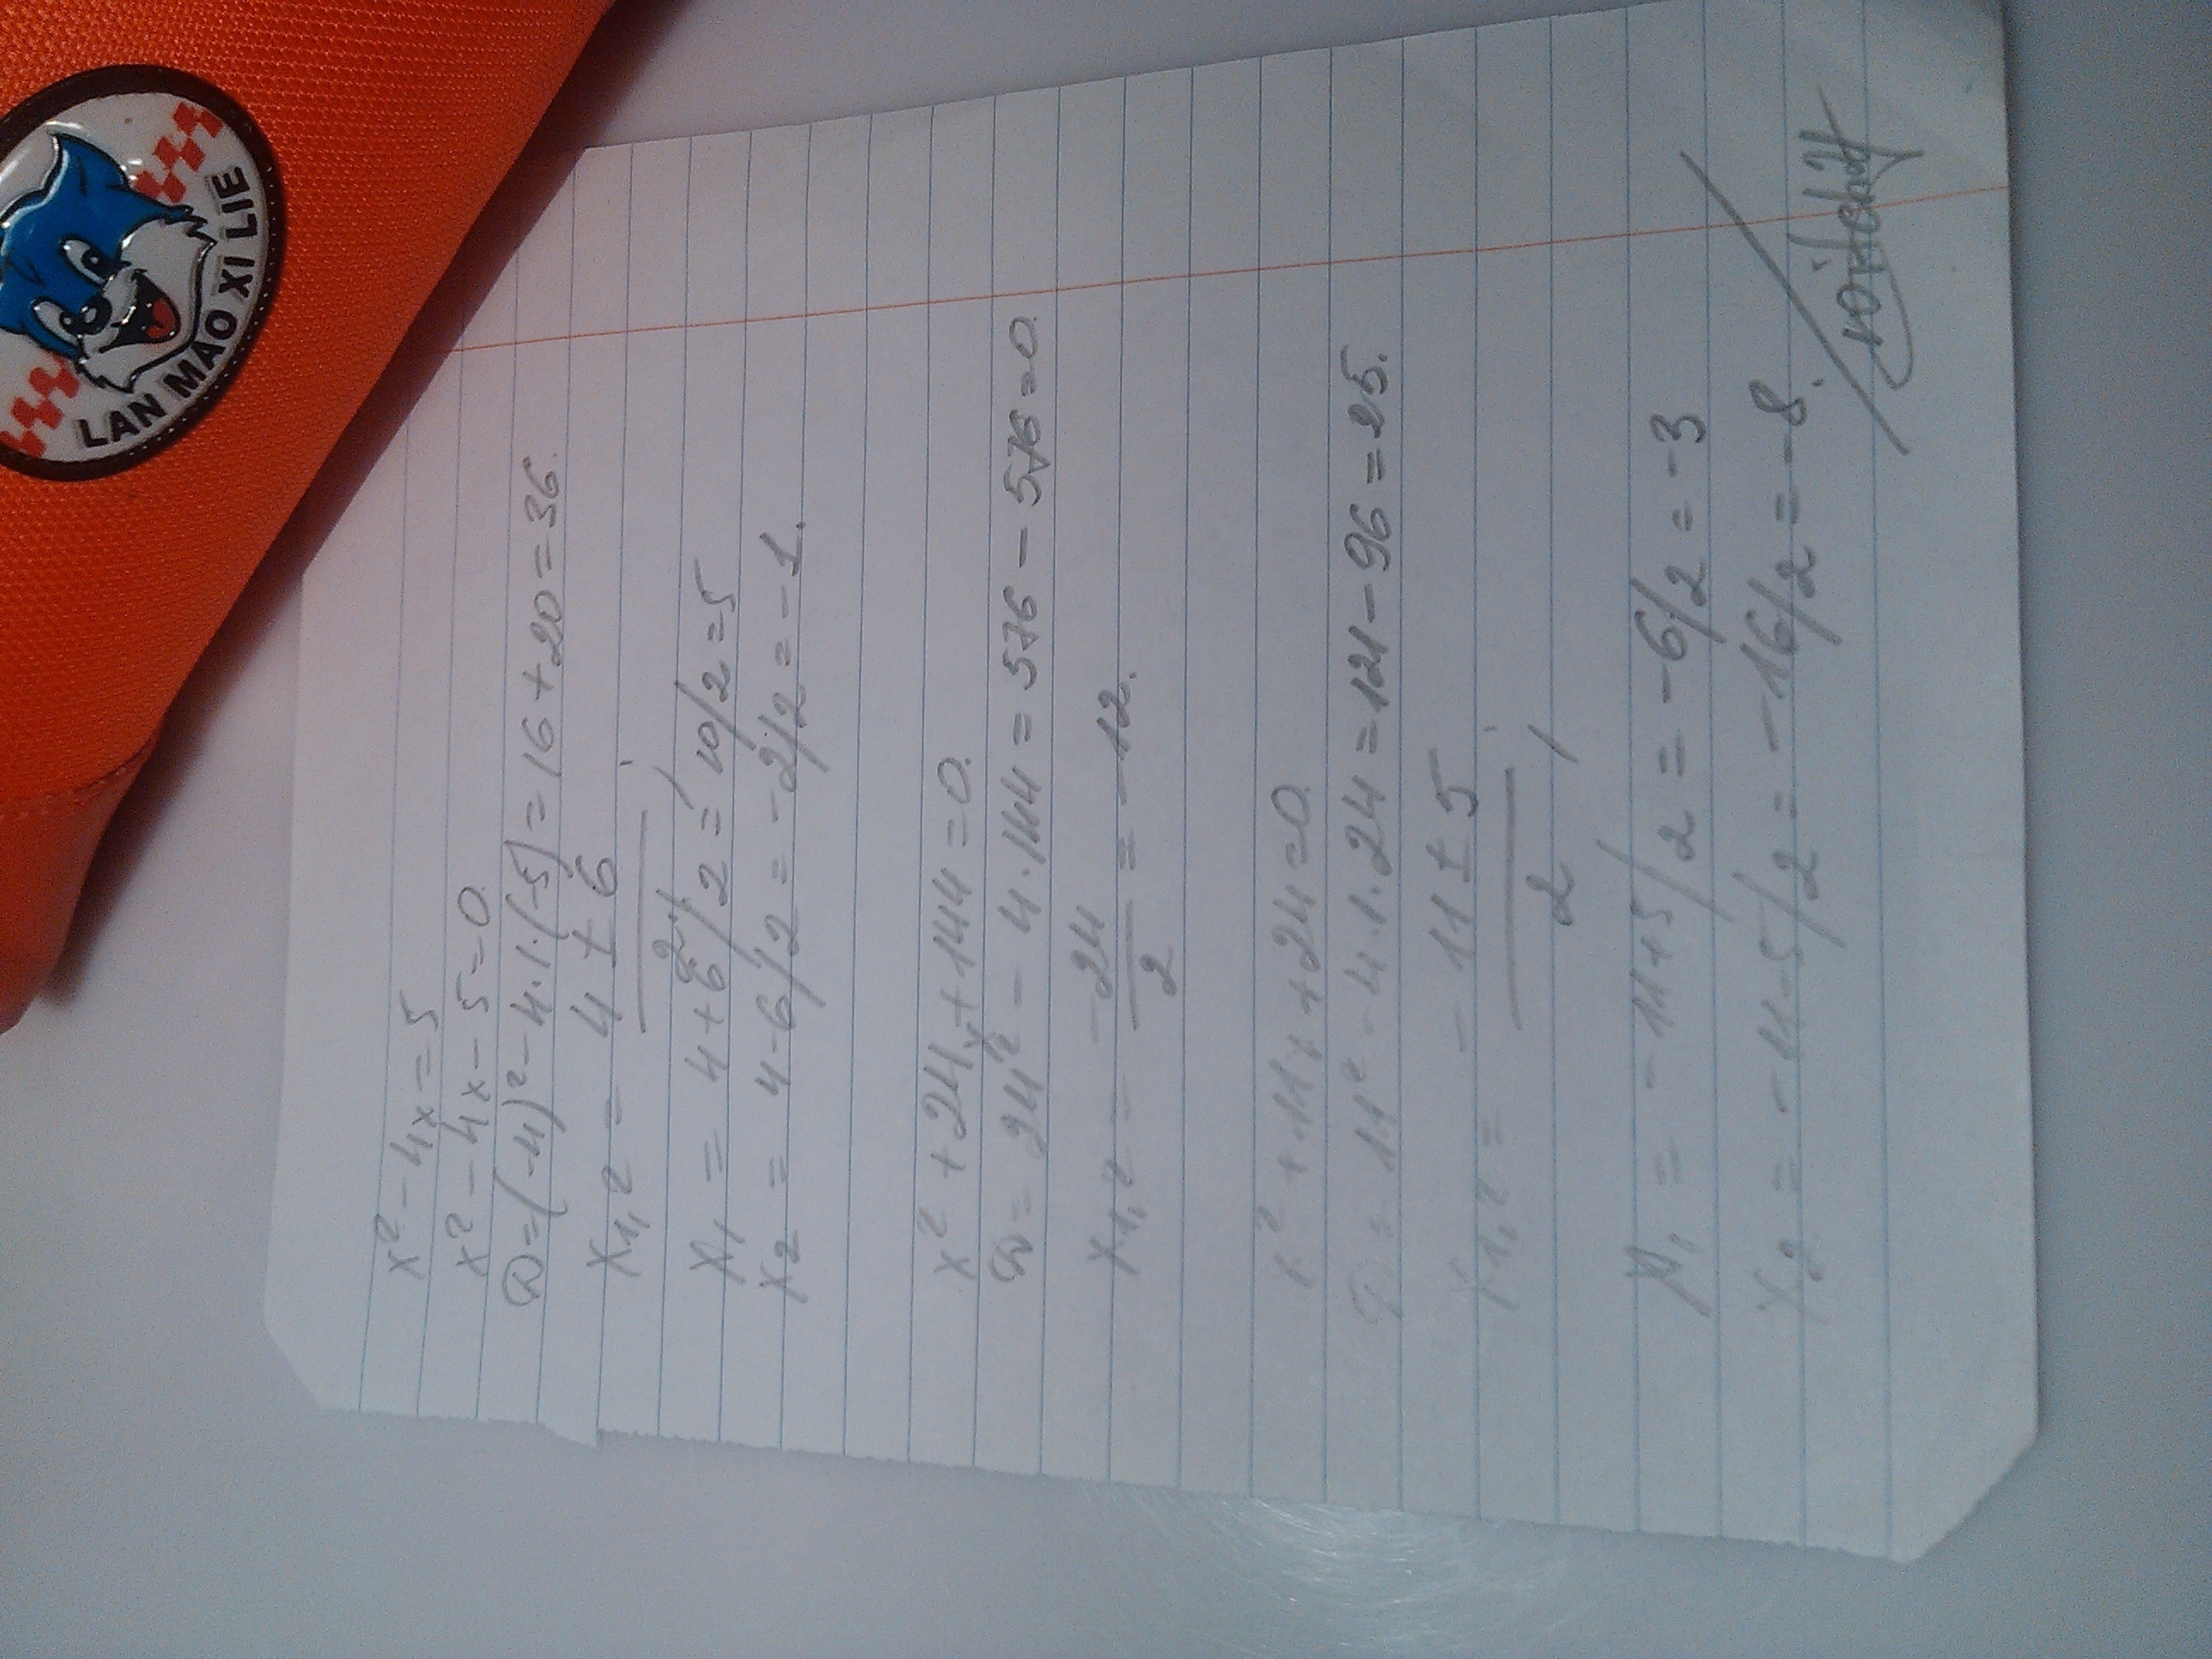 LAN MAO XI LIE
x² - 4x = 5
x² - 4x - 5 = 0.
D = (-4)² - 4·1·(-5) = 16 + 20 = 36.
x1,2 = 4 ± 6
2
x1 = 4+6/2 = 10/2 = 5
x2 = 4-6/2 = -2/2 = -1.
x² + 24x + 144 = 0.
D = 24² - 4·144 = 576 - 576 = 0.
x1,2 = -24/2 = -12.
x² + 11x + 24 = 0.
D = 11² - 4·1·24 = 121 - 96 = 25.
x1,2 = -11 ± 5
2
x1 = -11+5/2 = -6/2 = -3
x2 = -11-5/2 = -16/2 = -8.